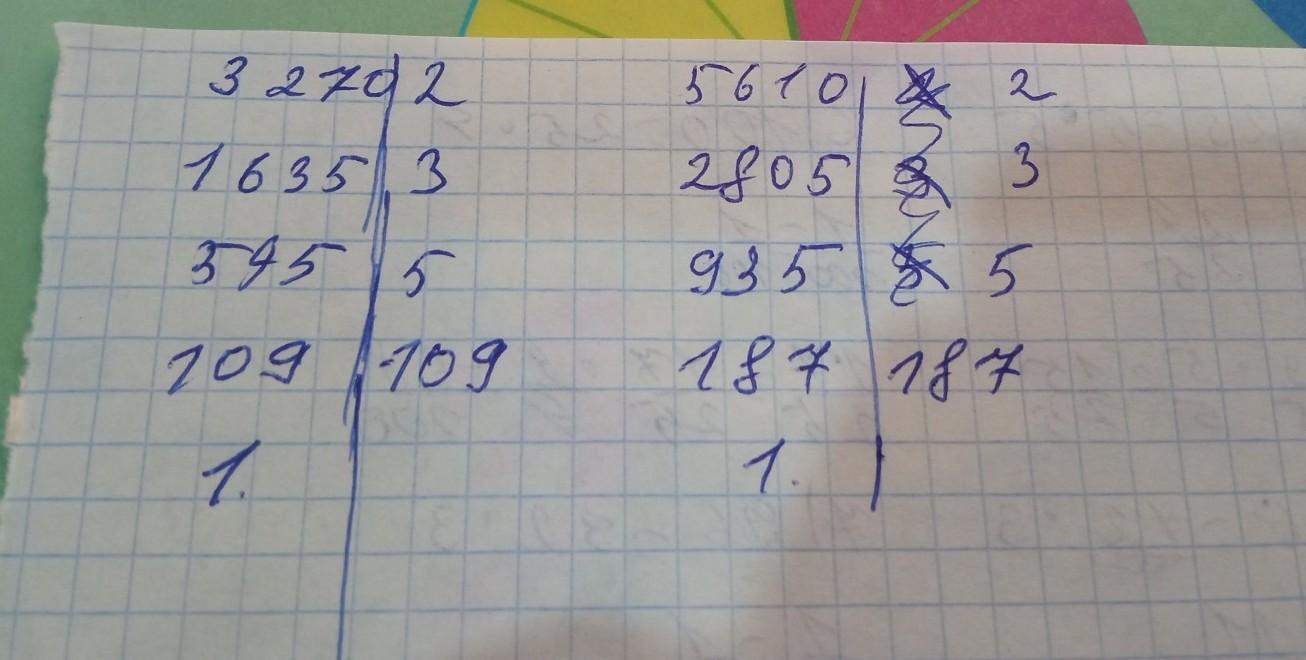 3270 2 5610 2
1635 3 2805 3
545 5 935 5
109 109 187 187
1. 1.